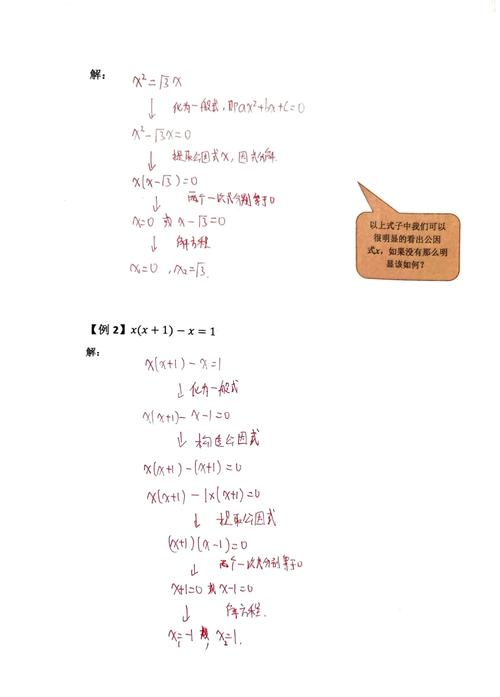 解：
x²=√3x
↓ 化为一般式，即ax²+bx+c=0
x²-√3x=0
↓ 提取公因式x，因式分解.
x(x-√3)=0
↓ 两个一次式分别等于0
x=0 或 x-√3=0
↓ 解方程
x₁=0，x₂=√3.
以上式子中我们可以
很明显的看出公因
式x，如果没有那么明
显该如何？
【例 2】x(x + 1) − x = 1
解：
x(x+1)-x=1
↓ 化为一般式
x(x+1)-x-1=0
↓ 构造公因式
x(x+1)-(x+1)=0
x(x+1)-1×(x+1)=0
↓ 提取公因式
(x+1)(x-1)=0
↓ 两个一次式分别等于0
x+1=0 或 x-1=0
↓ 解方程.
x₁=-1，x₂=1.